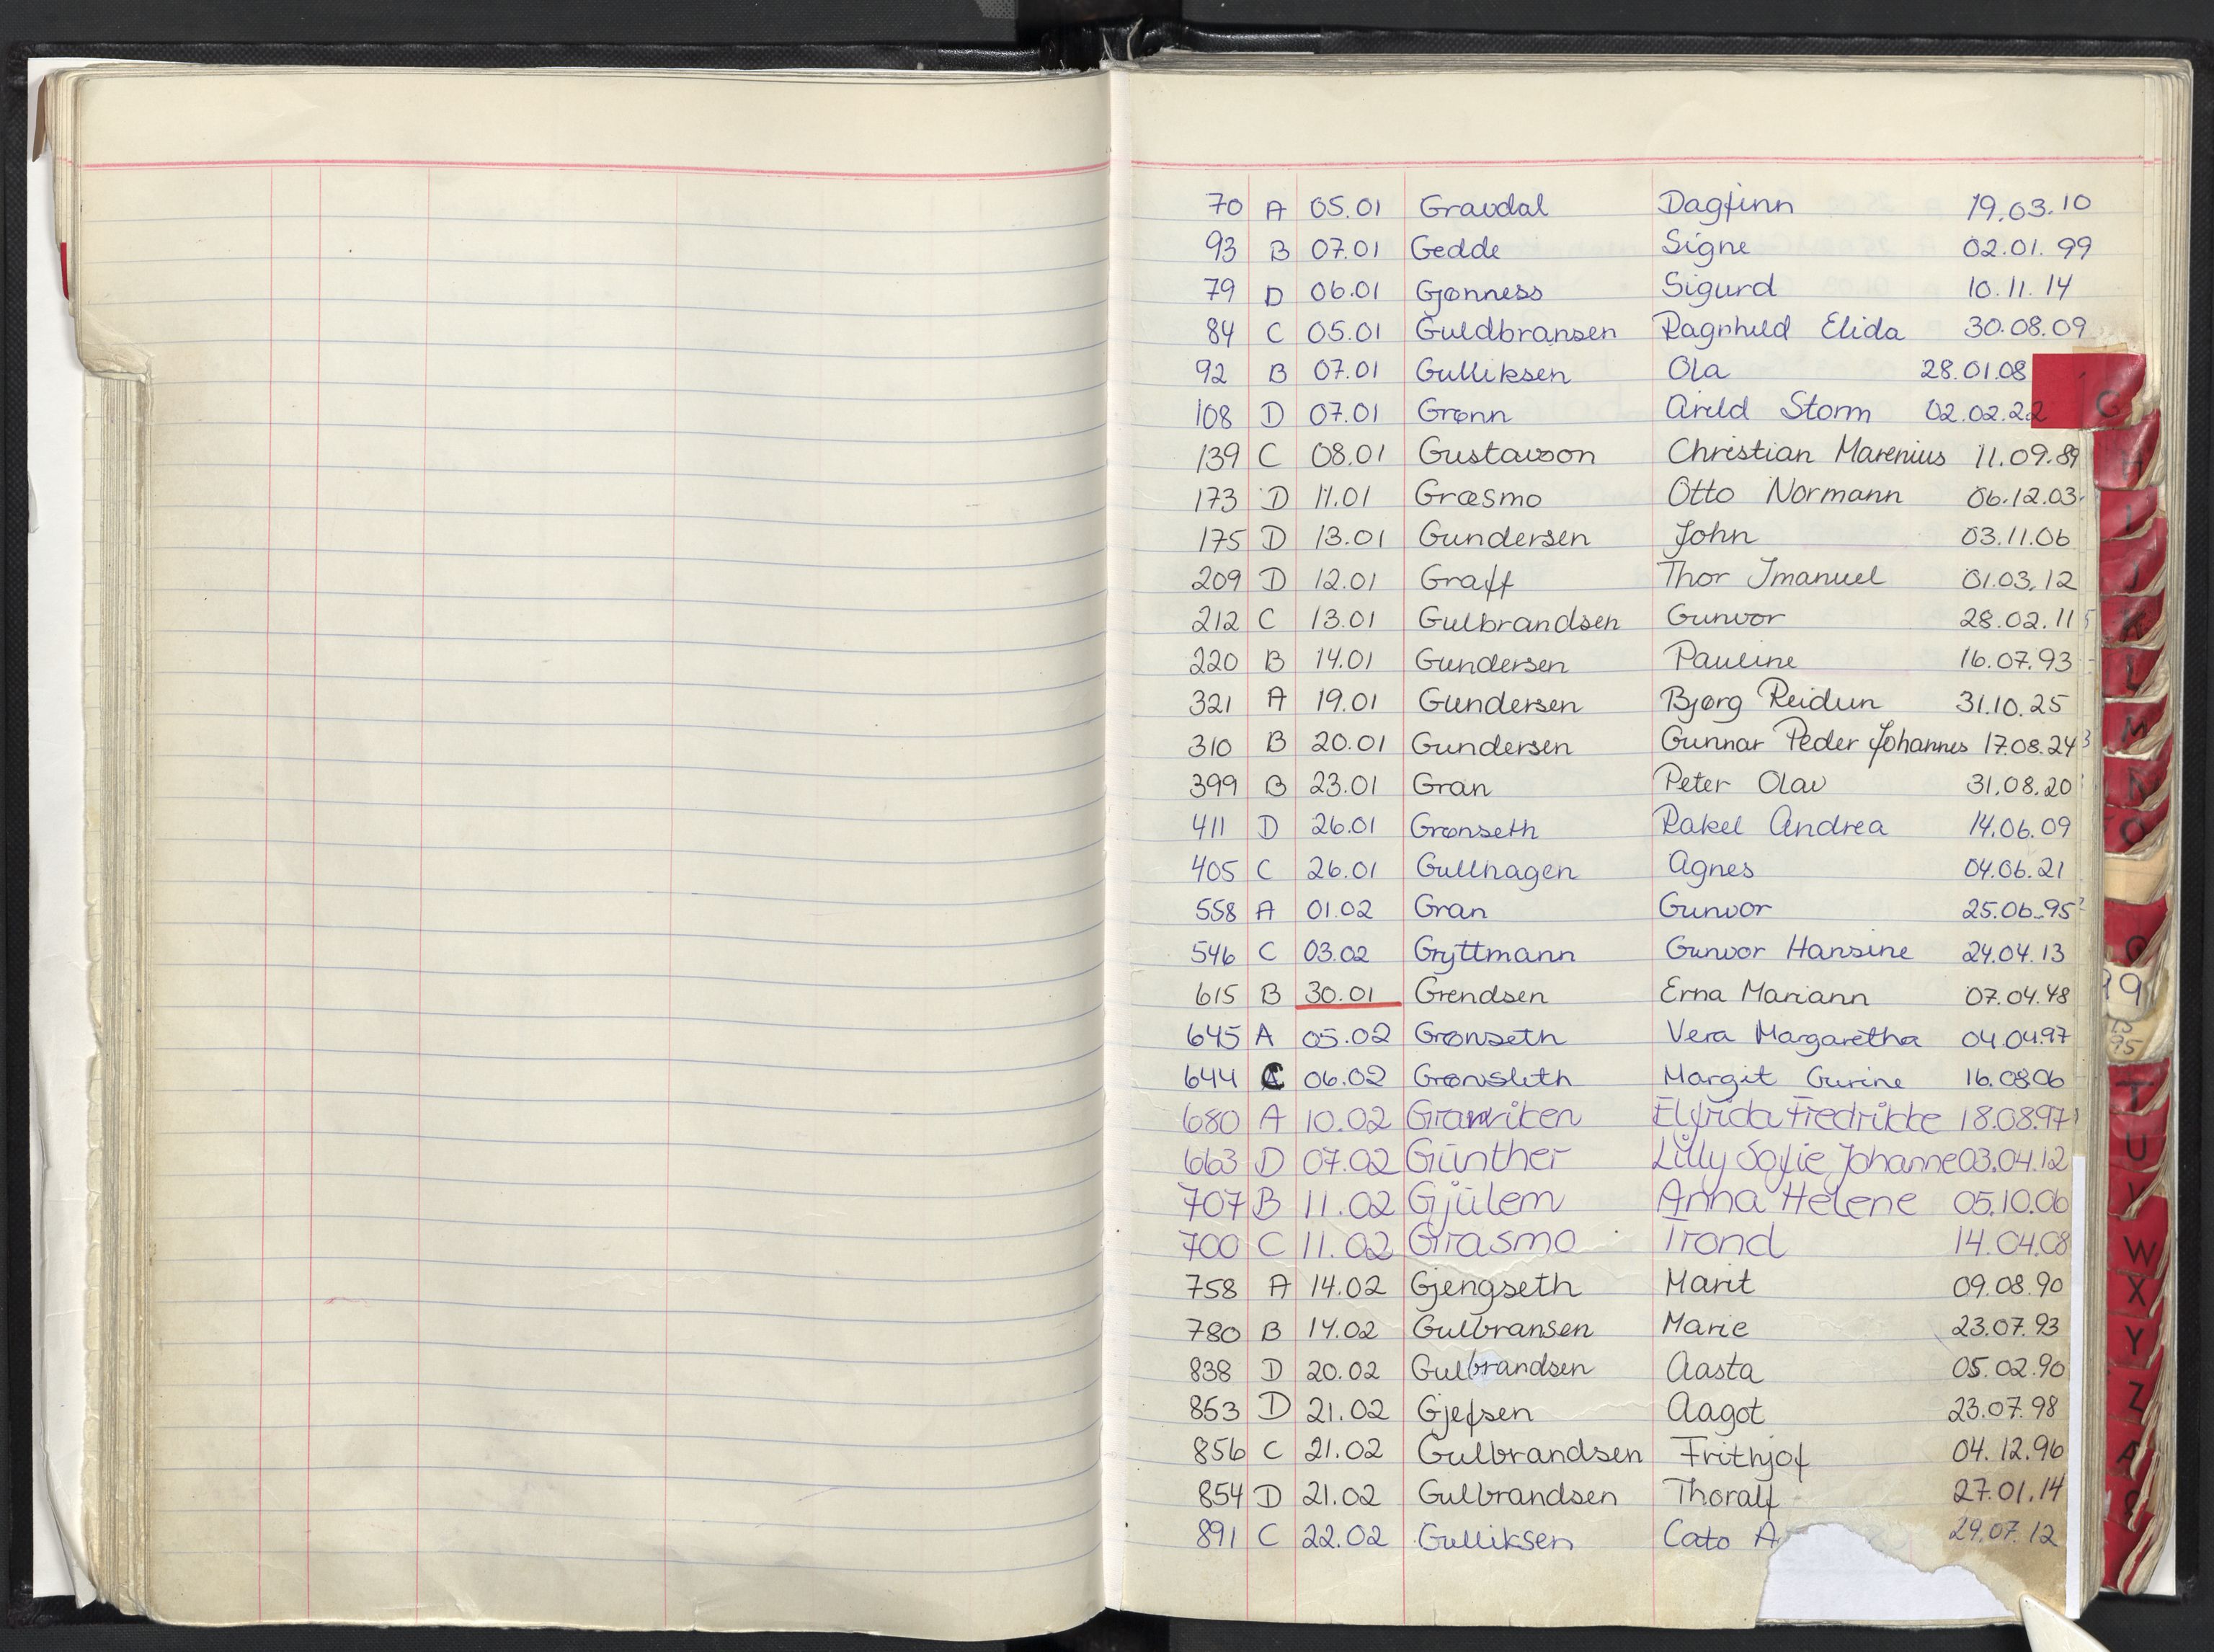 70 A 05.01 Gravdal Dagfinn 19.03.10
93 B 07.01 Gedde Signe 02.01.99
79 D 06.01 Gjønness Sigurd 10.11.14
84 C 05.01 Guldbransen Ragnhild Elida 30.08.09
92 B 07.01 Gulliksen Ola 28.01.08
G
108 D 07.01 Grønn Arild Storm 02.02.22
139 C 08.01 Gustavson Christian Marenius 11.09.89
173 D 11.01 Græsmo Otto Normann 06.12.03
175 D 13.01 Gundersen John 03.11.06
209 D 12.01 Graff Thor Imanuel 01.03.12
212 C 13.01 Gulbrandsen Gunvor 28.02.11
220 B 14.01 Gundersen Pauline 16.07.93
L
321 A 19.01 Gundersen Bjørg Reidun 31.10.25
M
310 B 20.01 Gundersen Gunnar Peder Johannes 17.08.24
399 B 23.01 Gran Peter Olav 31.08.20
N
411 D 26.01 Grønseth Rakel Andrea 14.06.09
O
405 C 26.01 Gullhagen Agnes 04.06.21
558 A 01.02 Gran Gunvor 25.06.95
546 C 03.02 Gryttmann Gunvor Hansine 24.04.13
615 B 30.01 Grendsen Erna Mariann 07.04.48
645 A 05.02 Grønseth Vera Margaretha 04.04.97
644 C 06.02 Grønsleth Margit Gurine 16.08.06
T
680 A 10.02 Granviken Elfrida Fredrikke 18.08.97
663 D 07.02 Günther Lilly Sofie Johanne 03.04.12
U
707 B 11.02 Gjülem Anna Helene 05.10.06
V
700 C 11.02 Grasmo Trond 14.04.08
W
758 A 14.02 Gjengseth Marit 09.08.90
X
780 B 14.02 Gulbransen Marie 23.07.93
Y
838 D 20.02 Gulbrandsen Aasta 05.02.90
Z
853 D 21.02 Gjefsen Aagot 23.07.98
856 C 21.02 Gulbrandsen Frithjof 04.12.96
854 D 21.02 Gulbrandsen Thoralf 27.01.14
891 C 22.02 Gulliksen Cato A 29.07.12